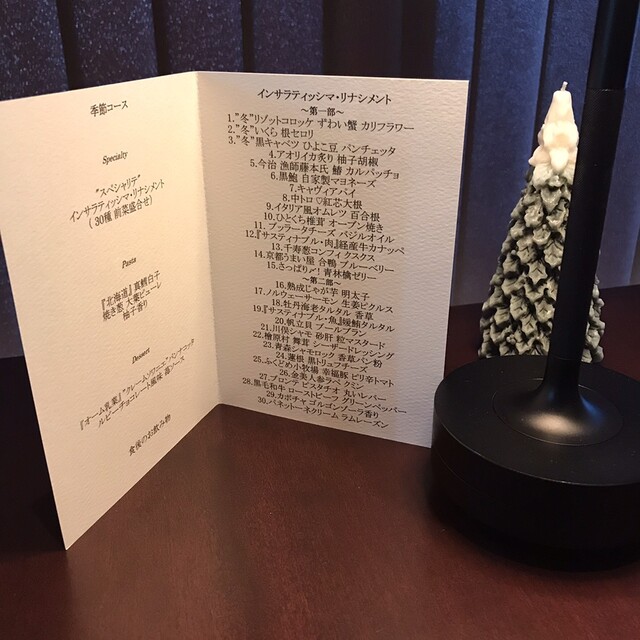 季節コース
Specialty
"スペシャリテ"
インサラティッシマ・リナシメント
( 30種 前菜盛合せ)
Pasta
『北海道』真鱈白子
焼き葱 大葉ピューレ
柚子香り
Dessert
『オーム乳業』"クレームソワニエ"パンナコッタ
ルビーチョコレート風味 苺ソース
食後のお飲み物
インサラティッシマ・リナシメント
～第一部～
1."冬"リゾットコロッケ ずわい蟹 カリフラワー
2."冬"いくら 根セロリ
3."冬"黒キャベツ ひよこ豆 パンチェッタ
4.アオリイカ炙り 柚子胡椒
5.今治 漁師藤本氏 鰆 カルパッチョ
6.黒鮑 自家製マヨネーズ
7.キャヴィアパイ
8.中トロ♡紅芯大根
9.イタリア風オムレツ 百合根
10.ひとくち椎茸 オーブン焼き
11.ブッラータチーズ バジルオイル
12.『サスティナブル・肉』経産牛カナッペ
13.千寿葱コンフィ クスクス
14.京都うまい屋 合鴨 ブルーベリー
15.さっぱり〜! 青林檎ゼリー
～第二部～
16.熟成じゃが芋 明太子
17.ノルウェーサーモン 生姜ピクルス
18.牡丹海老タルタル 香草
19.『サスティナブル・魚』鰤タルタル
20.帆立貝 ブールブラン
21.川俣シャモ 砂肝 粒マスタード
22.檜原村 舞茸 シーザードレッシング
23.青森シャモロック 香草パン粉
24.蓮根 黒トリュフチーズ
25.ふくどめ小牧場 幸福豚 ピリ辛トマト
26.金美人参ラペ クミン
27.ブロンテ ピスタチオ 丸いレバー
28.黒毛和牛 ローストビーフ グリーンペッパー
29.カボチャ ゴルゴンゾーラ香り
30.パネットーネクリーム ラムレーズン